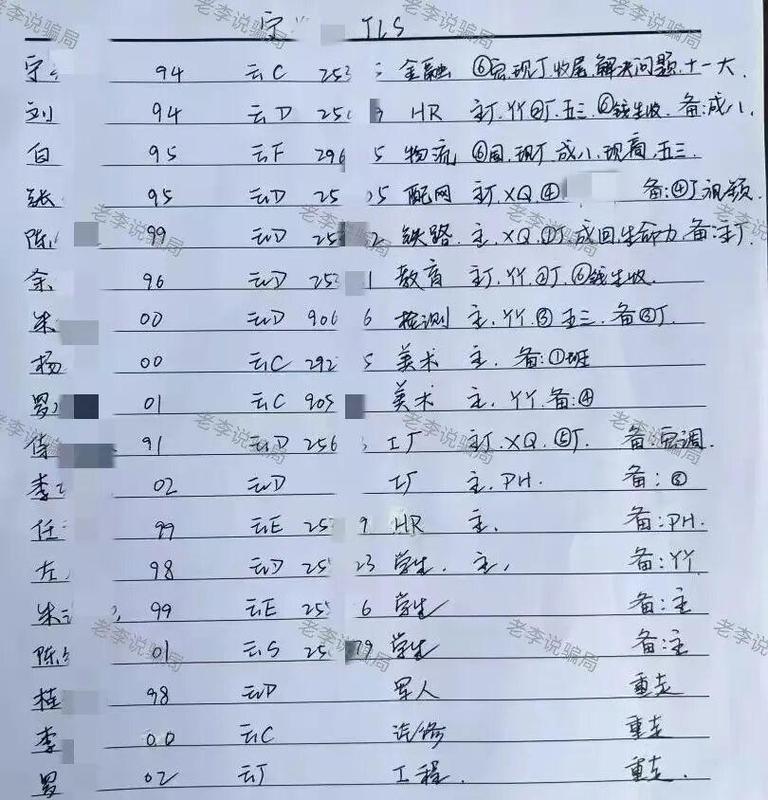 宁 JLS
宁 94 云C 253 金融 ⑥总现J.收尾.解决问题.十一大.
刘 94 云D 25 HR 主J.竹②J.五三.⑥钱生收.备:成八.
白 95 云F 296 5 物流 ⑥固.现J成八.现商.五三.
张 95 云D 25 25 配网 主J.XQ.④ 备:④J视频.
陈 99 云D 25 2 铁路.主.XQ.①J.成回.生命力.备:主J.
余 96 云D 25 1 教育 主J.竹.②J.⑥钱生收.
朱 00 云D 906 6 检测 主.竹.③五三.备③J.
杨 00 云C 292 5 美术 主.备:①班
罗 01 云C 905 美术 主.竹.备:④
91 云D 256 工厂 主J.XQ.⑤J.备:
李 02 云D 工厂 主.PH. 备:②
任 99 云E 25 9 HR 主. 备:PH.
左 98 云D 25 23 学生.主. 备:竹
朱 99 云E 25 6 学生 备:主
陈 01 云S 25 79 学生 备:主
桂 98 云D 军人 重走
李 00 云C 汽修 重走
罗 02 云J 工程. 重走.
老李说骗局